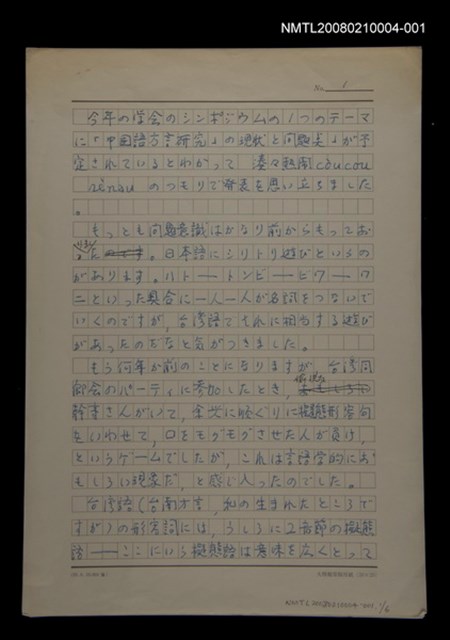 NMTL20080210004-001
No. 1
今年の学会のシンポジウムの1つのテーマ
に「中国語方言研究」の現状と問題点」が予
定されているとわかって 湊々熱鬧còucòu
rènau のつもりで発表を思い立ちました
。
もっとも問題意識はかなり前からもってお
た 。日本語にシリトリ遊びというの
があります。ハト——トンビ——ビワ——ワ
ニといった具合に一人一人が名詞をつないで
いくのですが、台湾語でそれに相当する遊び
があったのだなと気がつきました。
もう何年か前のことになりますが、台湾同
郷会のパーティに参加したとき、
幹事さんがいて、全員に順ぐりに擬態形容句
をいわせて、口をモグモグさせた人が負け、
というゲームでしたが、これは言語学的にお
もしろい現象だ、と感じ入ったのでした。
台湾語(台南方言、私の生まれたところで
すが)の形容詞には、うしろに2音節の擬態
語——ここにいう擬態語は意味を広くとって
NMTL20080210004-001 1/6